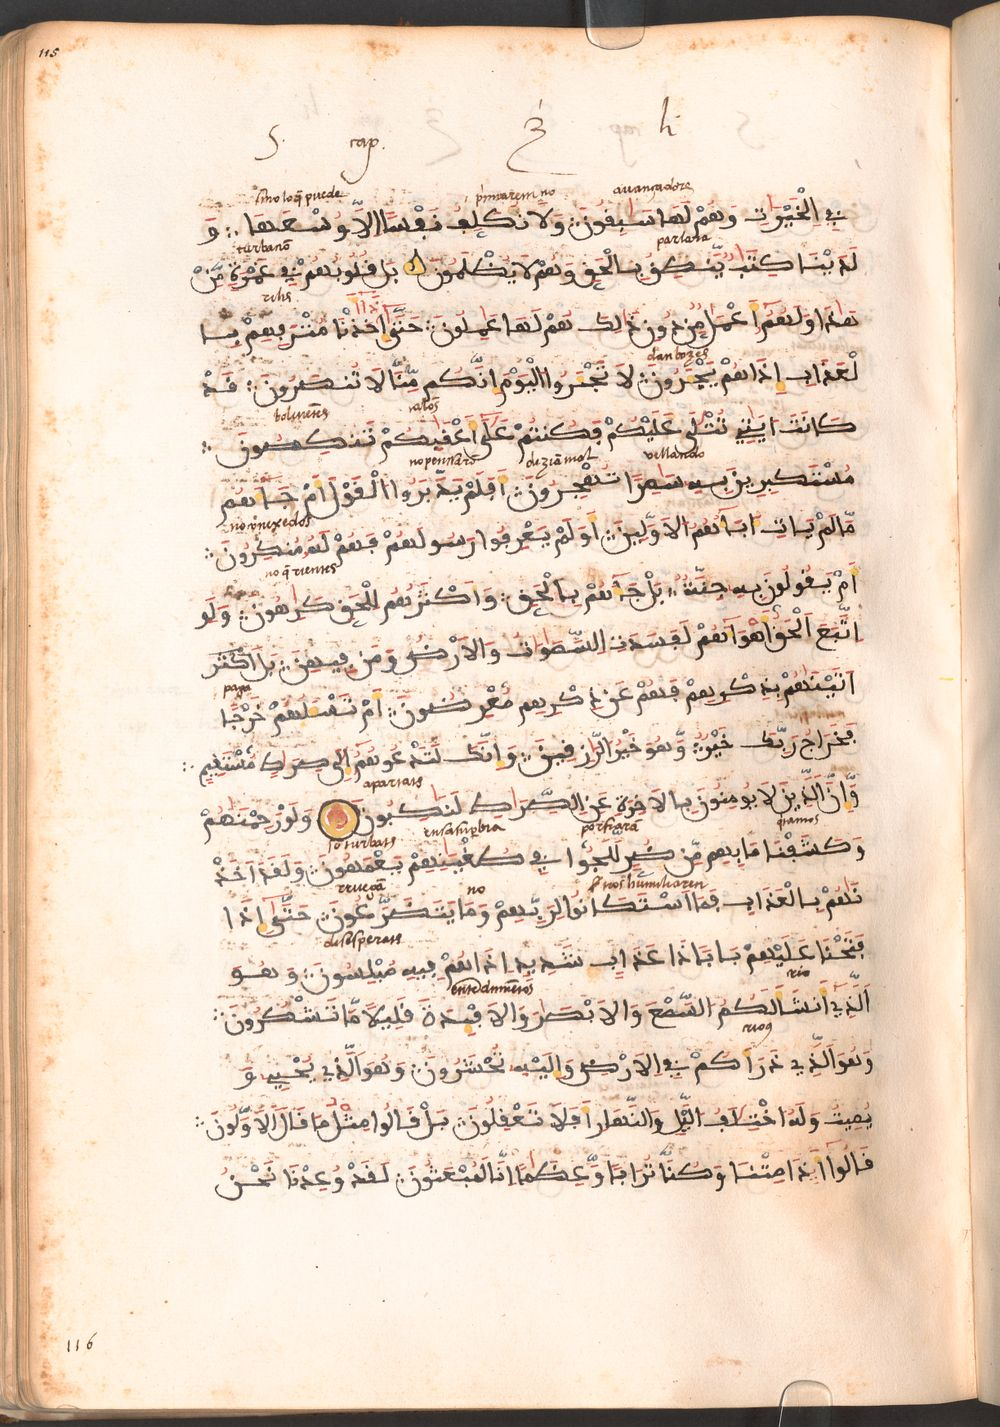 115
S. cap. 3 li
sino loq̃ puede p̃miarem no auançadore
فِي الْخَيْرَاتِ وَهُمْ لَهَا سَٰبِقُونَ وَلَا نُكَلِّفُ نَفْسًا اِلَّا وُسْعَهَا وَ
turbanō parlara
لَدَيْنَا كِتَٰبٌ يَّنطِقُ بِالْحَقِّ وَهُمْ لَا يُظْلَمُونَ بَلْ قُلُوبُهُمْ فِي غَمْرَةٍ مِّنْ
هَٰذَا وَلَهُمُ أَعْمَٰلٌ مِّن دُونِ ذَٰلِكَ هُمْ لَهَا عَٰمِلُونَ حَتَّىٰ إِذَا أَخَذْنَا مُتْرَفِيهِم بِا
dan bozes
لْعَذَابِ إِذَا هُمْ يَجْـَٔرُونَ لَا تَجْـَٔرُوا الْيَوْمَ إِنَّكُم مِّنَّا لَا تُنصَرُونَ قَدْ
boluietes
كَانَتَ ايَٰتِي تُتْلَىٰ عَلَيْكُمْ فَكُنتُمْ عَلَىٰ أَعْقَٰبِكُمْ تَنكِصُونَ
no pensarō dezian mal vellando
مُسْتَكْبِرِينَ بِهِ سَٰمِرًا تُهْجِرُونَ أَفَلَمْ يَدَّبَّرُوا الْقَوْلَ أَمْ جَاءَهُم
مَّا لَمْ يَاتِ ابَاءَهُمُ الْاَوَّلِينَ أَوَ لَمْ يَعْرِفُوا رَسُولَهُمْ فَهُمْ لَهُ مُنكِرُونَ
no q̃rientes
أَمْ يَقُولُونَ بِهِ جِنَّةٌ بَلْ جَاءَهُم بِالْحَقِّ وَأَكْثَرُهُمْ لِلْحَقِّ كَٰرِهُونَ وَلَوِ
اتَّبَعَ الْحَقُّ أَهْوَاءَهُمْ لَفَسَدَتِ السَّمَٰوَاتُ وَالْاَرْضُ وَمَن فِيهِنَّ بَلَ
paga
اتَيْنَٰهُم بِذِكْرِهِمْ فَهُمْ عَن ذِكْرِهِم مُّعْرِضُونَ أَمْ تَسْـَٔلُهُمْ خَرْجًا
فَخَرَاجُ رَبِّكَ خَيْرٌ وَّهُوَ خَيْرُ الرَّٰزِقِينَ وَإِنَّكَ لَتَدْعُوهُمُ إِلَىٰ صِرَٰطٍ مُّسْتَقِيمٍ
apartats
وَّإِنَّ الَّذِينَ لَا يُومِنُونَ بِالْاَخِرَةِ عَنِ الصِّرَٰطِ لَنَٰكِبُونَ وَلَوْ رَحِمْنَٰهُمْ
so turbats en sa sup̃bia porfiarā q̃tamos
وَكَشَفْنَا مَا بِهِم مِّن ضُرٍّ لَّلَجُّوا فِي طُغْيَٰنِهِمْ يَعْمَهُونَ وَلَقَدَ اَخَذْ
no se nos humiliaren
نَٰهُم بِالْعَذَابِ فَمَا اسْتَكَانُوا لِرَبِّهِمْ وَمَا يَتَضَرَّعُونَ حَتَّىٰ إِذَا
desesperats
فَتَحْنَا عَلَيْهِم بَابًا ذَا عَذَابٍ شَدِيدٍ إِذَا هُمْ فِيهِ مُبْلِسُونَ وَهُوَ
entedimetos crio
الَّذِي أَنشَأَ لَكُمُ السَّمْعَ وَالْاَبْصَٰرَ وَالْاَفْـِٔدَةَ قَلِيلًا مَّا تَشْكُرُونَ
crios
وَهُوَ الَّذِي ذَرَأَكُمْ فِي الْاَرْضِ وَإِلَيْهِ تُحْشَرُونَ وَهُوَ الَّذِي يُحْيِي وَ
يُمِيتُ وَلَهُ اخْتِلَٰفُ الَّيْلِ وَالنَّهَارِ أَفَلَا تَعْقِلُونَ بَلْ قَالُوا مِثْلَ مَا قَالَ الْاَوَّلُونَ
قَالُوا أَ۟ذَا مِتْنَا وَكُنَّا تُرَابًا وَعِظَٰمًا إِنَّا لَمَبْعُوثُونَ لَقَدْ وُعِدْنَا نَحْنُ
116